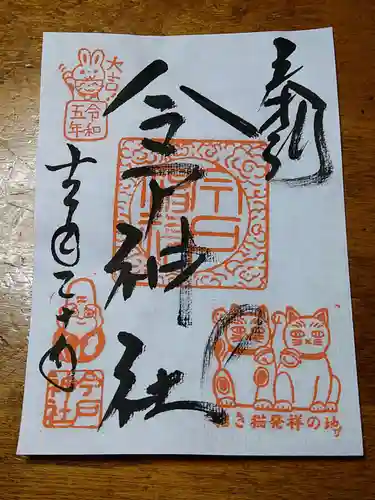 奉拝
今戸神社
大吉
令和
五年
十二月二十八日
今戸
神社
招き猫発祥の地